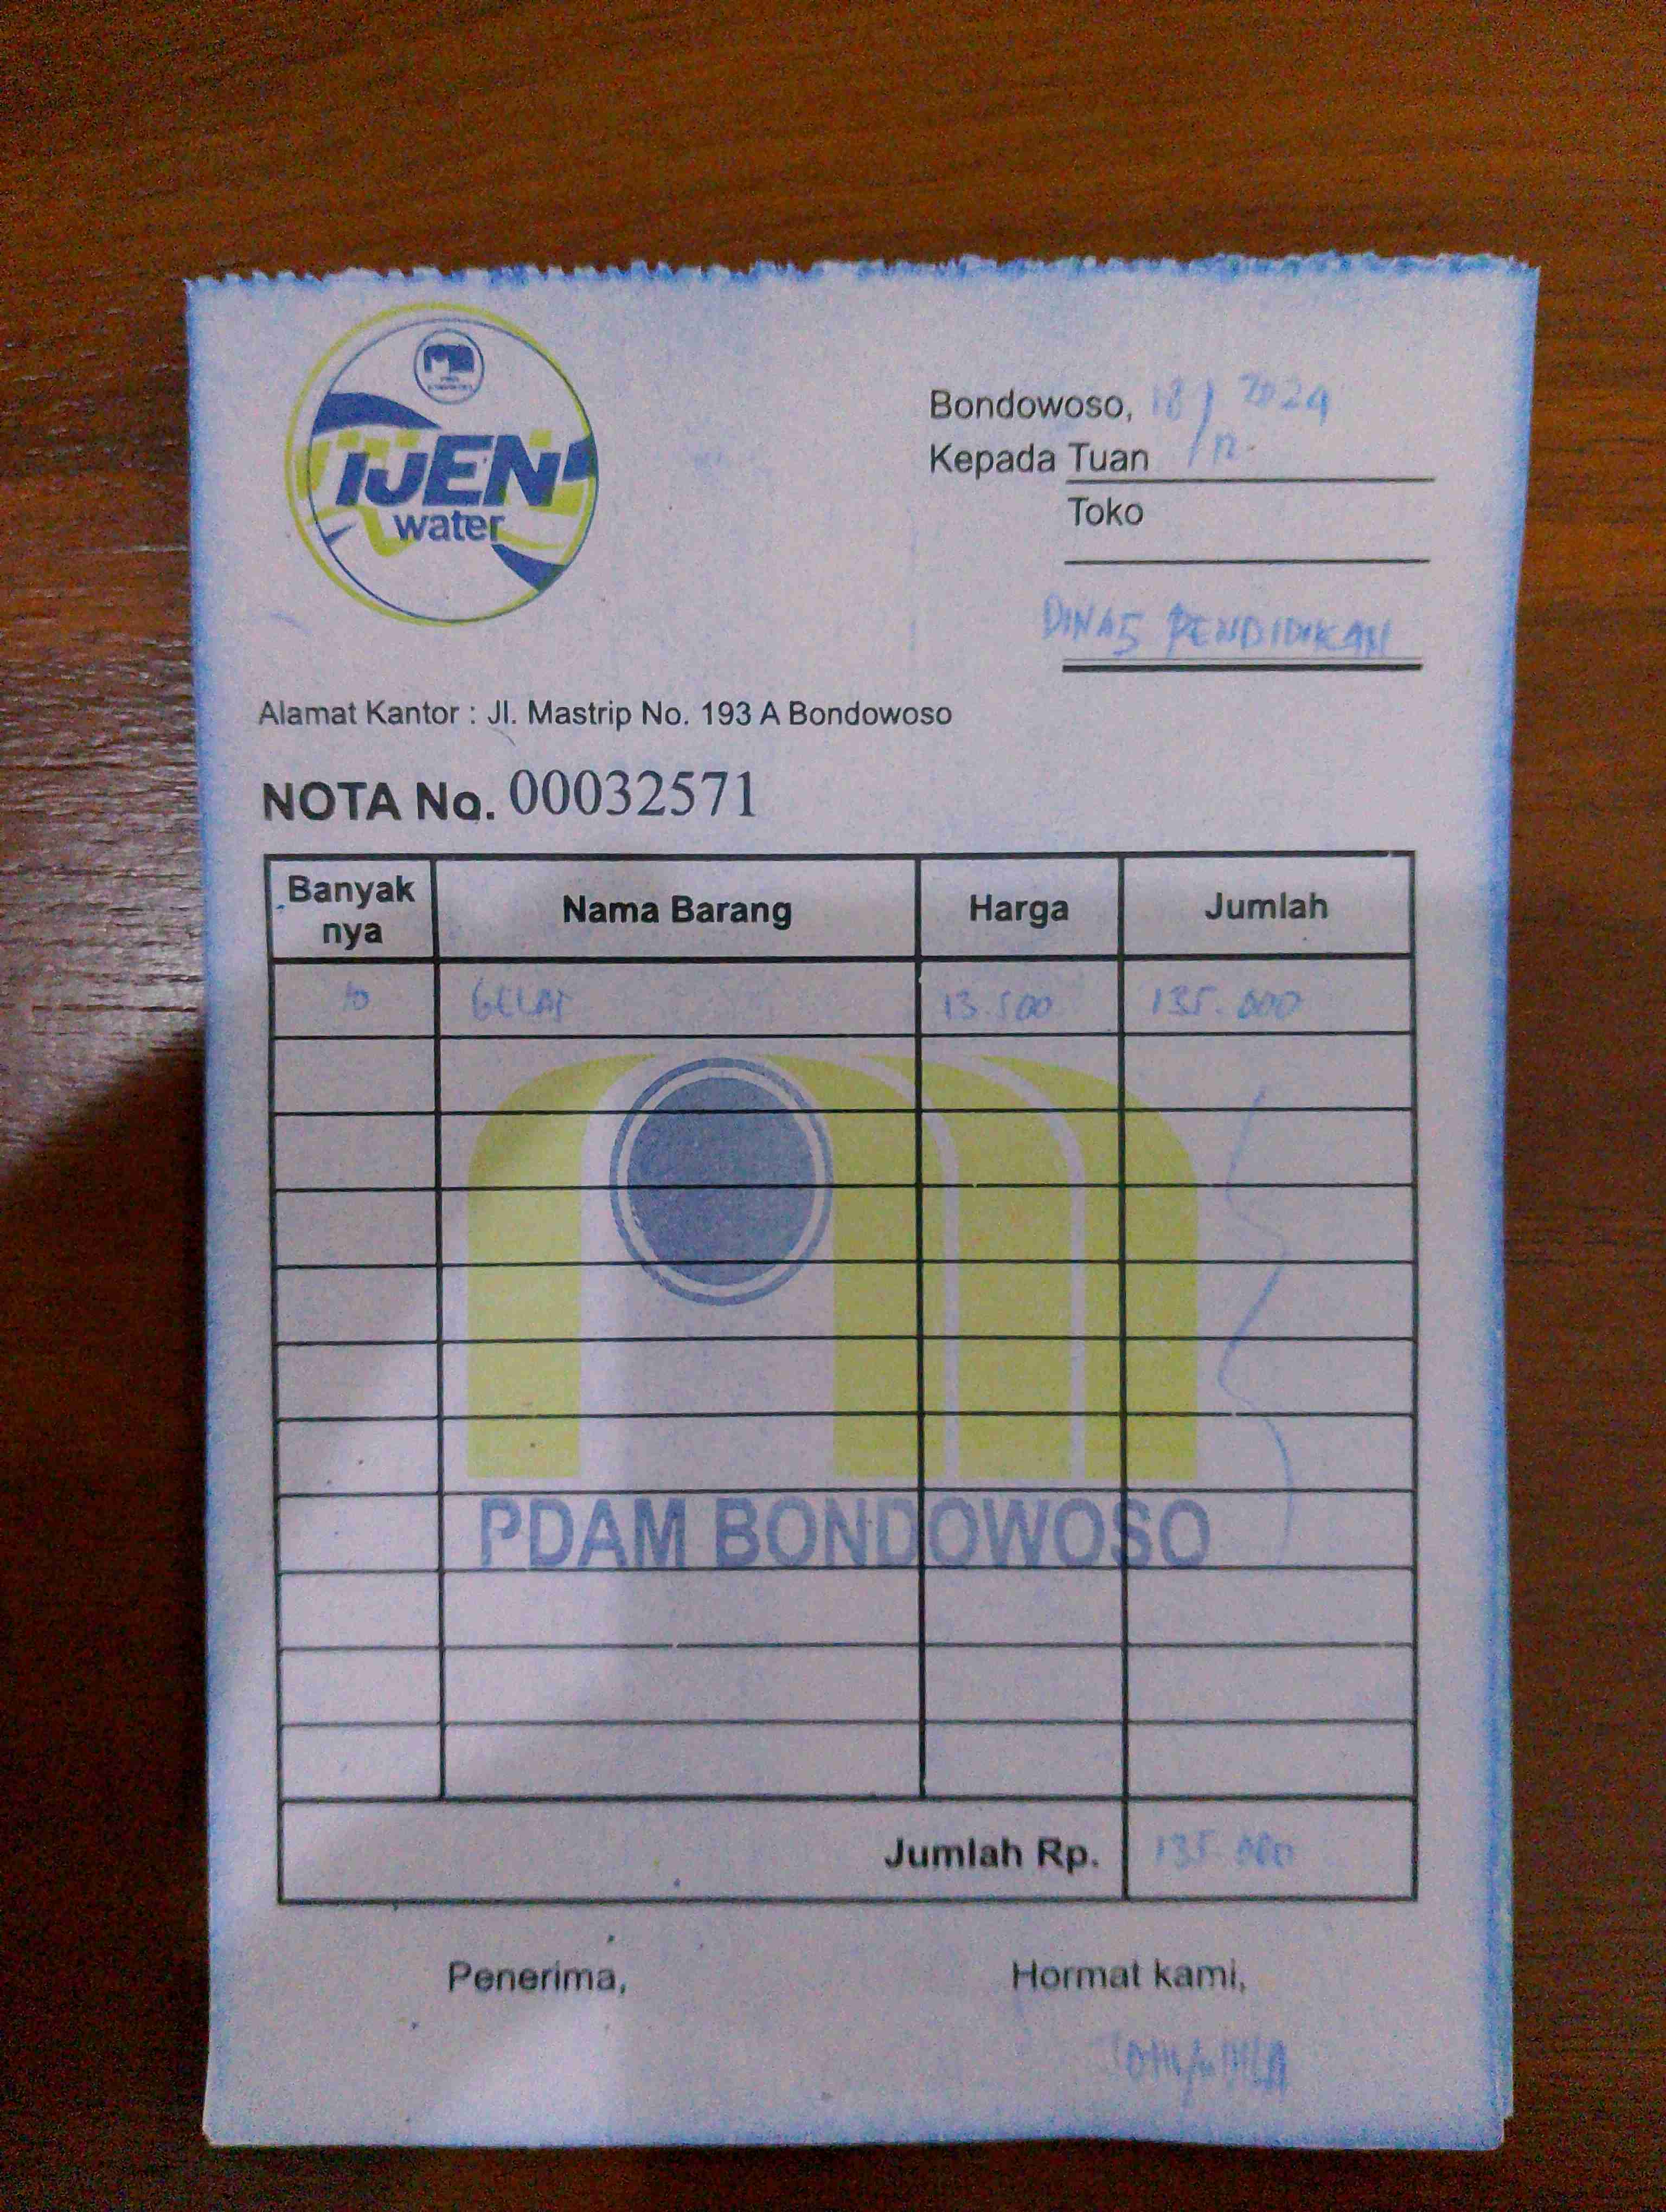 IJEN
water
Bondowoso, 18/12 2024
Kepada Tuan
Toko
DINAS PENDIDIKAN
Alamat Kantor : Jl. Mastrip No. 193 A Bondowoso
NOTA No. 00032571
Banyak nya Nama Barang Harga Jumlah
10 GELAS 13.500 135.000
PDAM BONDOWOSO
Jumlah Rp. 135.000
Penerima, Hormat kami,